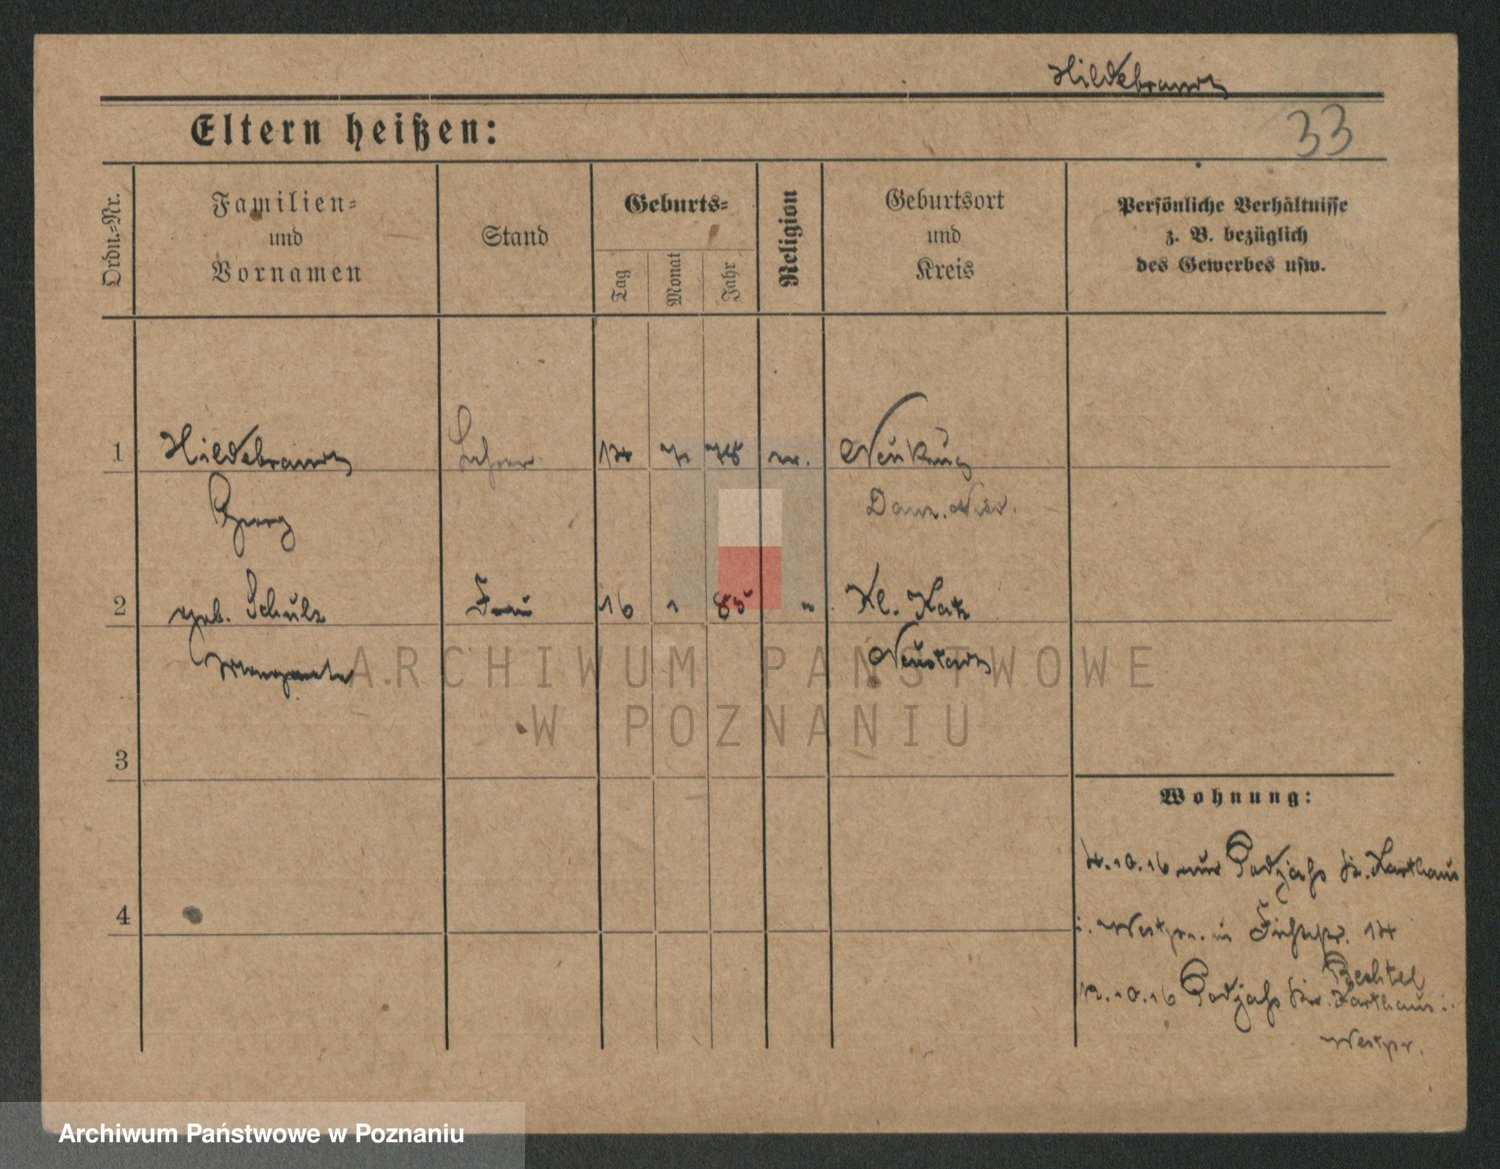 Hildebrandt
33
Eltern heißen:
Ordn.-Nr.
Familien-
und
Vornamen
Stand
Geburts-
Tag
Monat
Jahr
Religion
Geburtsort
und
Kreis
Persönliche Verhältnisse
z. B. bezüglich
des Gewerbes usw.
1 Hildebrandt Lehrer 14 7. 78 ev. Neukrug
Georg
2 geb. Schulz Frau 16 " 85 " Kl. Katz
Margarete Neustadt
ARCHIWUM PAŃSTWOWE
W POZNANIU
3
4
Wohnung:
4.10.16 nur Podjahs Kr. Karthaus
i. Westpr. in 14
Bechtel
12.10.16 Podjahs Kr. Karthaus i.
Westpr.
Archiwum Państwowe w Poznaniu